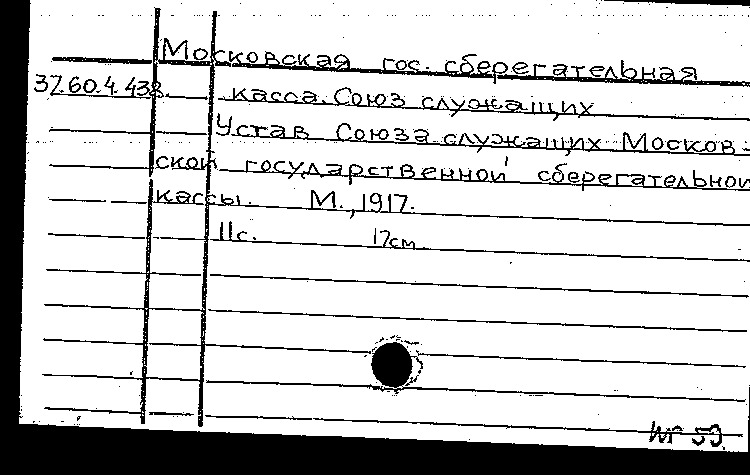 Московская гос. сберегательная
37.60.4.438. касса. Союз служащих
Устав Союза служащих Москов-
ской государственной сберегательной
кассы. М., 1917.
11с. 17см.